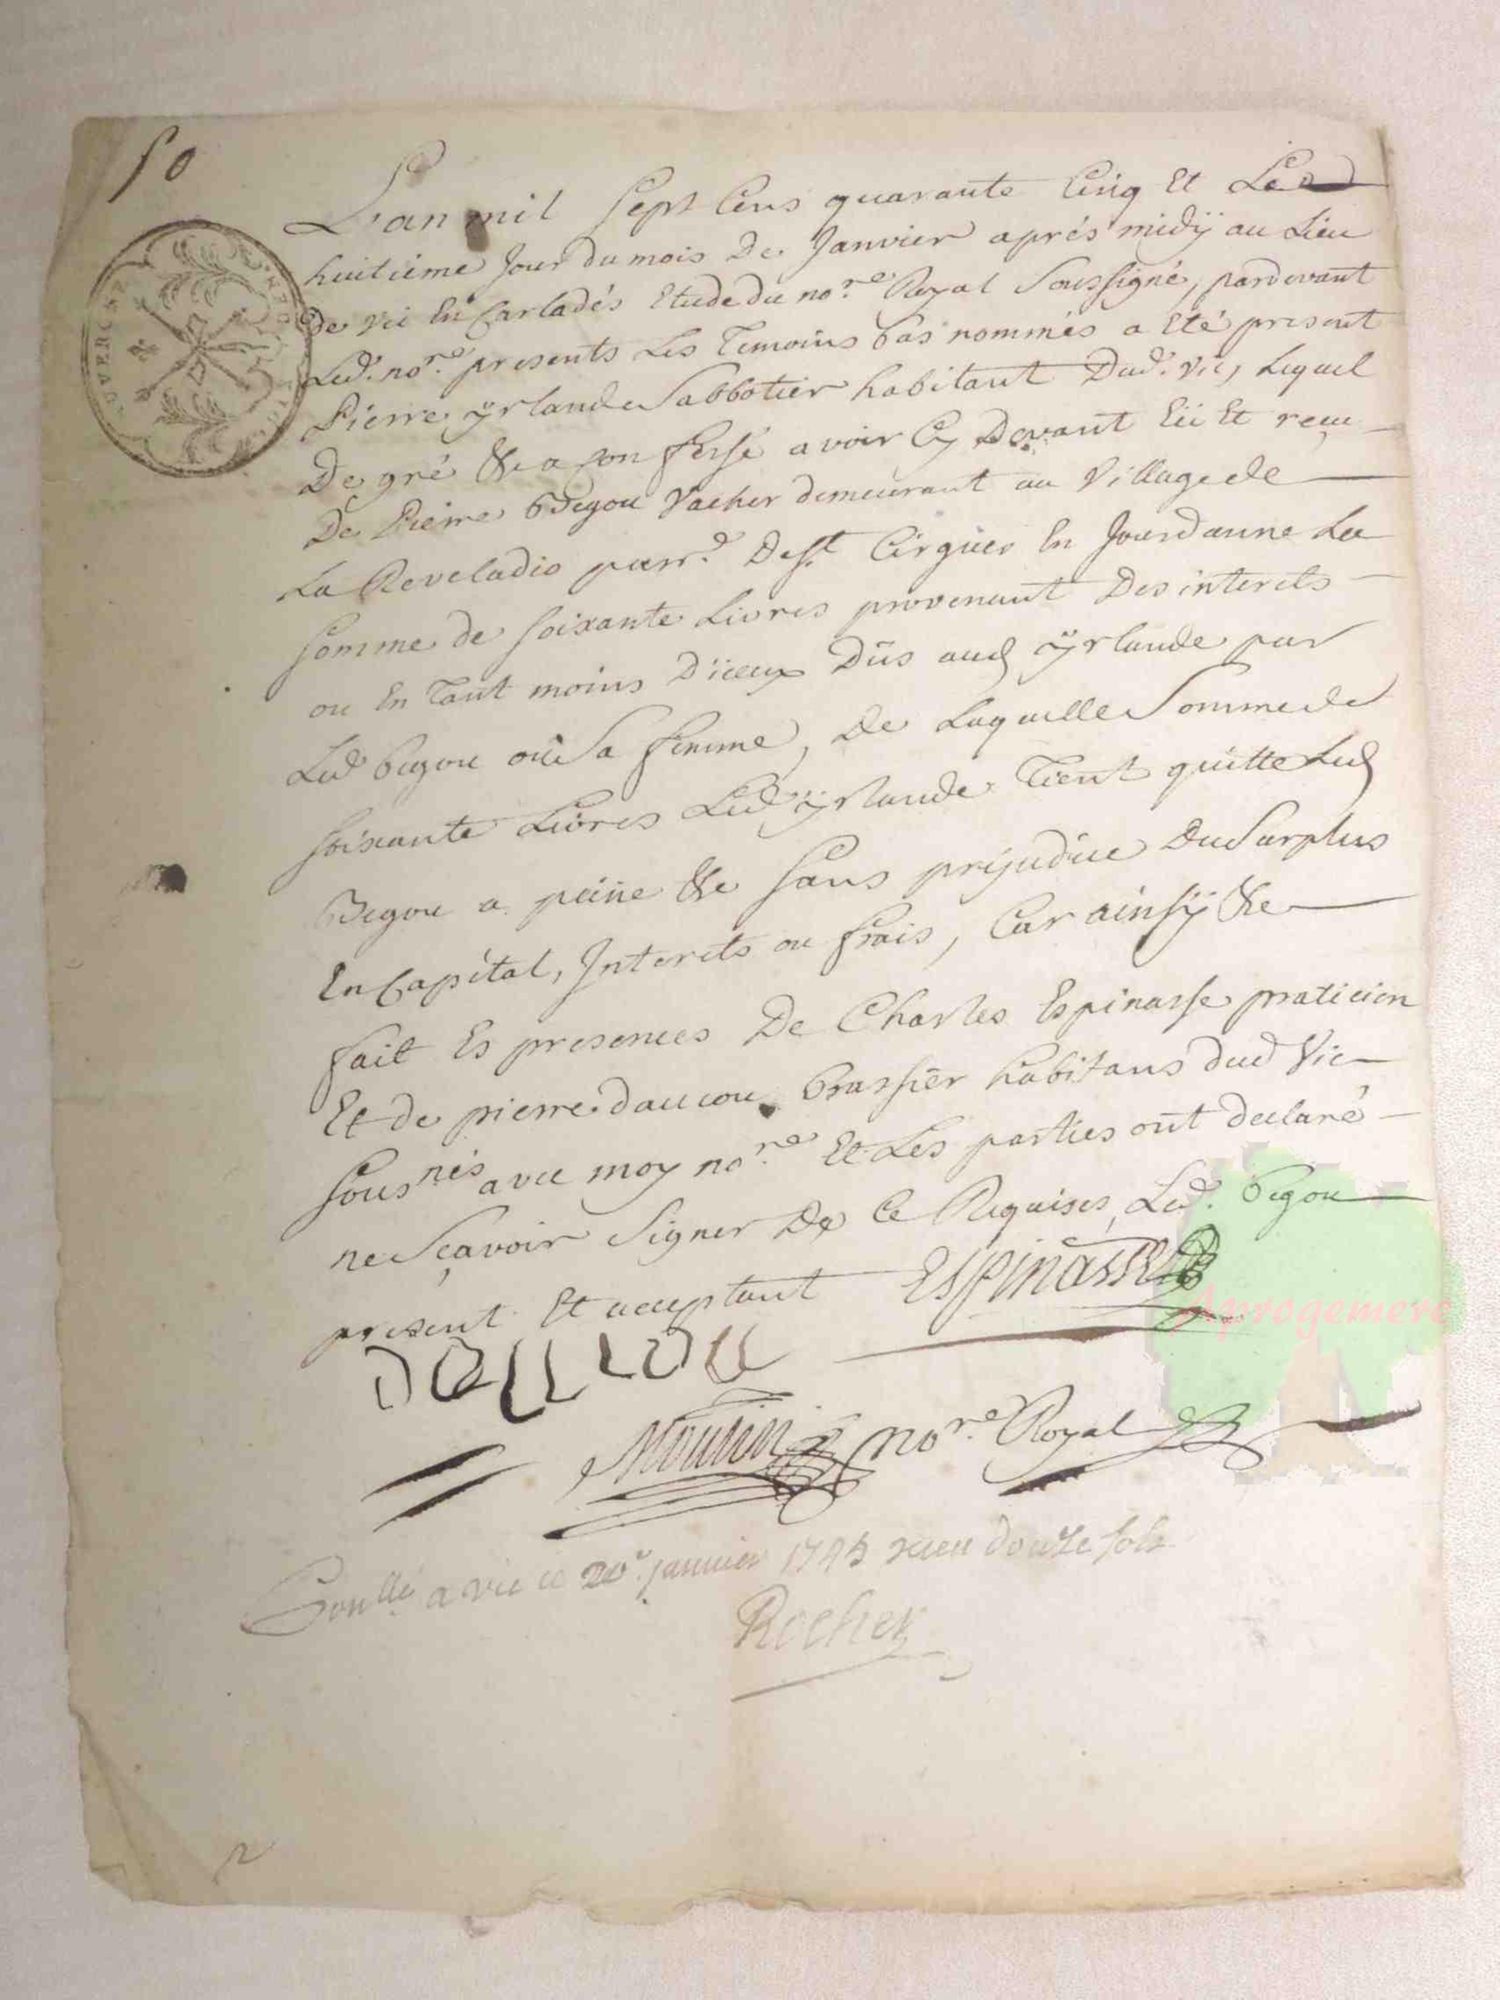 50
AUVERGNE
L'an mil sept cens quarante cinq et Le
huitiéme Jour du mois De Janvier aprés midÿ au Lieu
De vic En Carladés Etude du no.re Royal Soussigné, pardevant
Led. no.re presents Les Temoins bas nommés a Eté present
Pierre ÿrlande Sabbotier habitant Dud. vic, Lequel
De gré &c a confessé avoir Cy Devant Eü Et reçu
De Pierre Begou Vacher demeurant au Village de
La Reveladie parr.e De St. Cirgües En Jourdanne La
somme de soixante Livres provenant Des interets
ou En Tant moins D'iceux Dûs aud ÿrlande par
Led Begou oû Sa femme, De Laquelle Somme de
soixante Livres Led ÿrlande Tient quitte Led
Begou a peine &c sans prejudice Du Surplus
En Capital, Interets ou frais, Car ainsÿ &c
fait Es presences De Charles Espinasse praticien
Et de pierre daucou brassier habitans dud Vic
sousnés avec moy no.re Et Les parties ont declaré
ne Sçavoir signer De Ce Requises, Led. Begou
present Et acceptant ESPINASSE
DAUCOU
Moulin no.re Royal
Aprogemere
Conllé a vic ce 20e janvier 1745 receu douze sols
Rocher
2